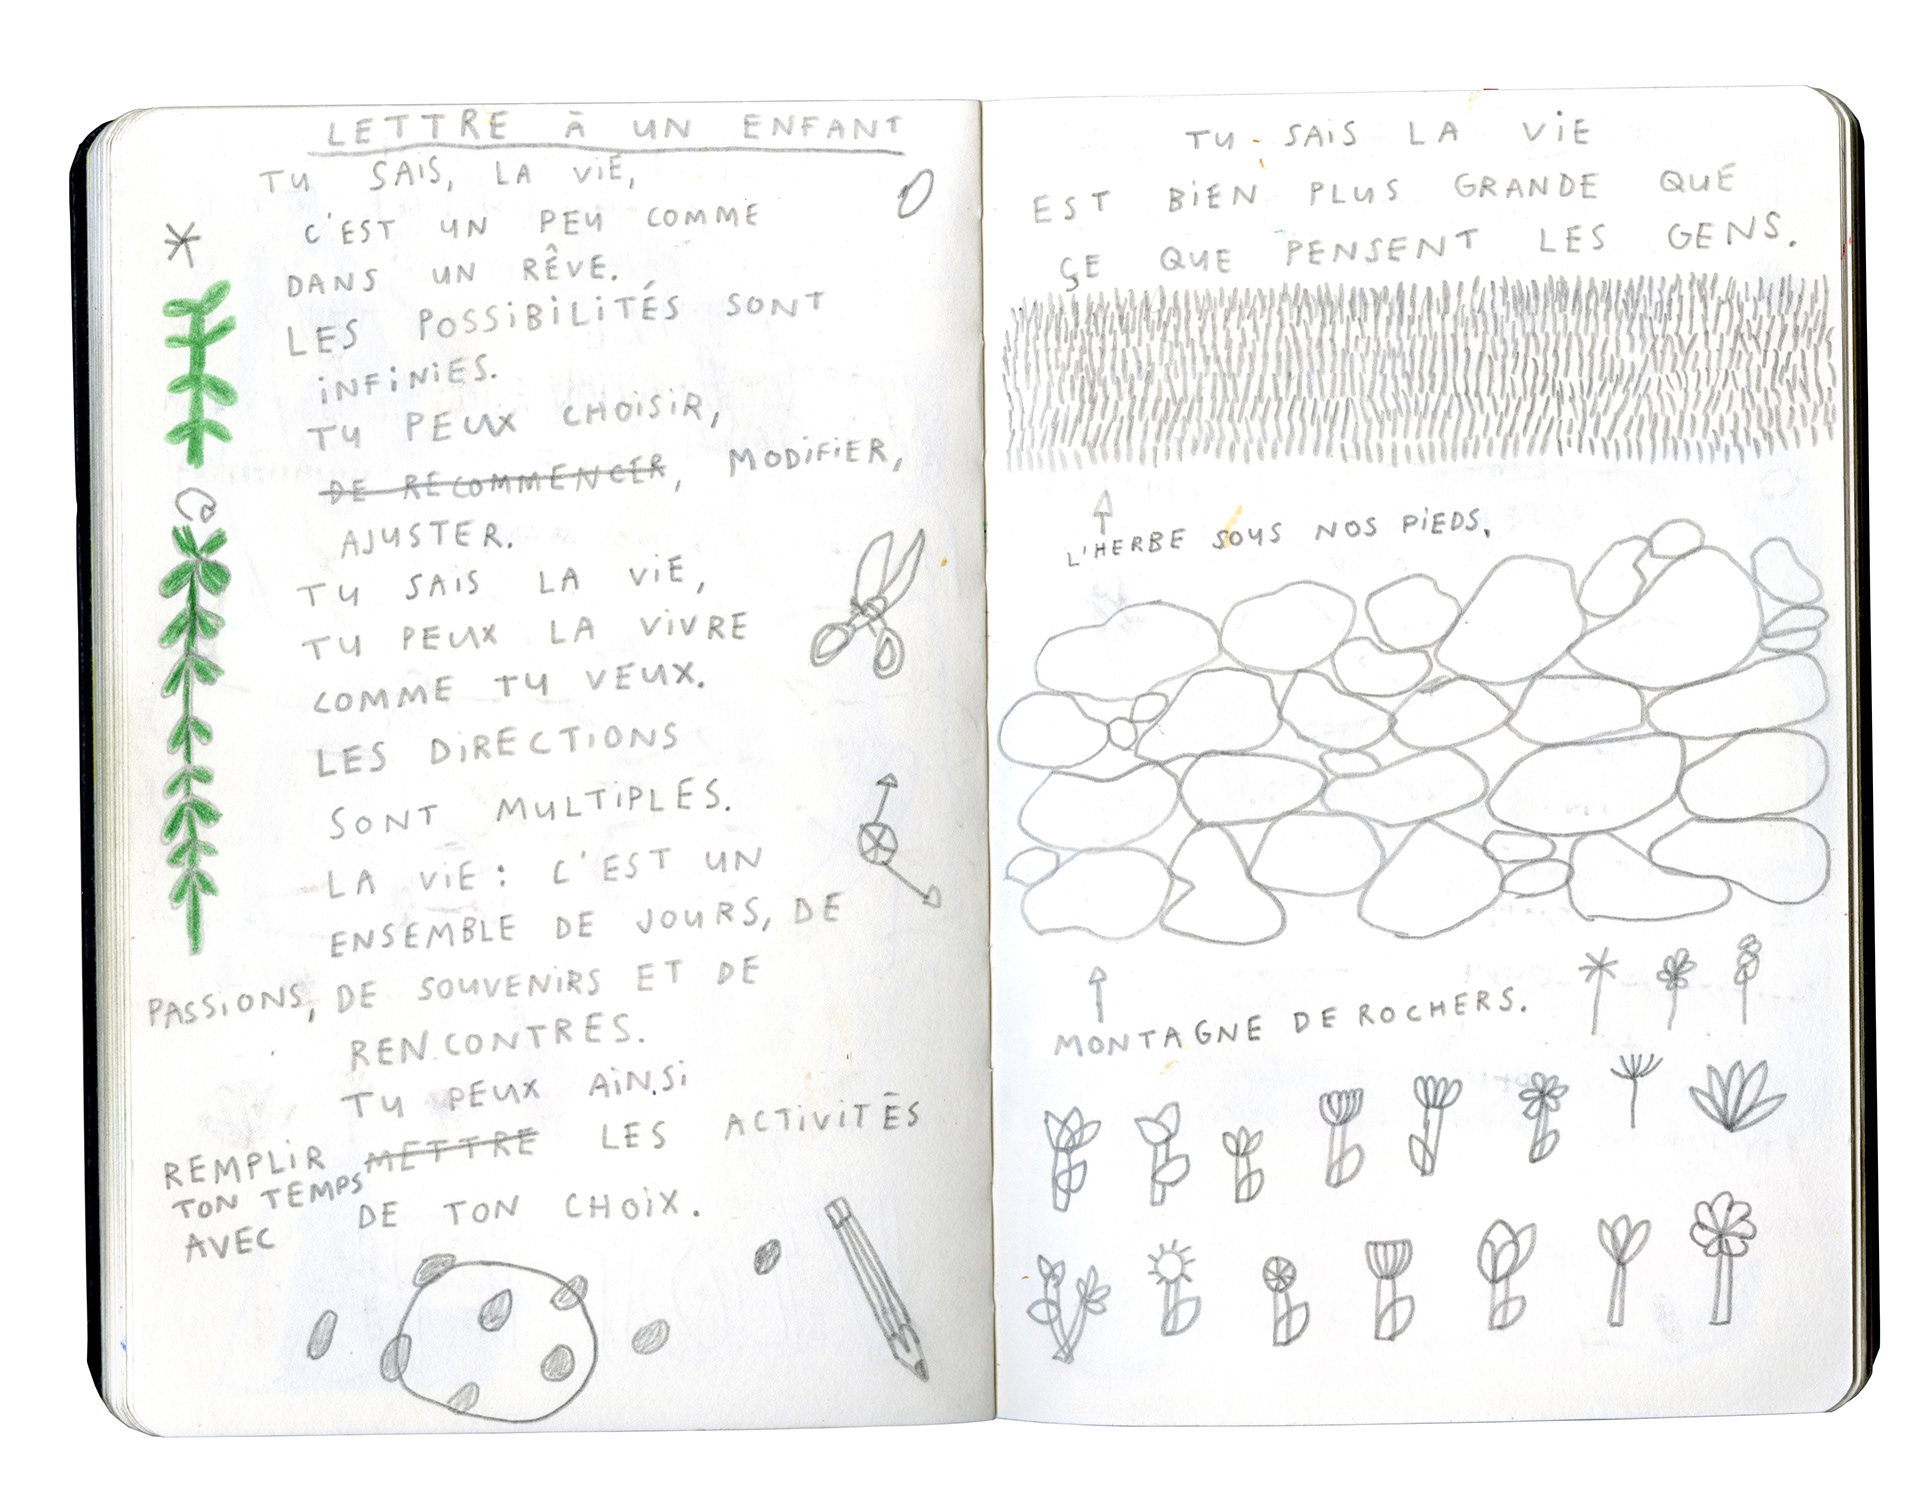 LETTRE À UN ENFANT
TU SAIS, LA ViE,
C'EST UN PEU COMME
DANS UN RÊVE.
LES POSSiBiLiTÉS SONT
iNFiNiES.
TU PEUX CHOiSiR,
DE RECOMMENCER, MODiFiER,
AJUSTER.
TU SAIS LA ViE,
TU PEUX LA ViVRE
COMME TU VEUX.
LES DiRECTIONS
SONT MULTiPLES.
LA ViE : C'EST UN
ENSEMBLE DE JOURS, DE
PASSIONS, DE SOUVENiRS ET DE
RENCONTRES.
TU PEUX AiNSi
REMPLiR METTRE LES ACTiViTÉS
TON TEMPS
AVEC DE TON CHOiX.
TU SAiS LA ViE
EST BiEN PLUS GRANDE QUE
ÇE QUE PENSENT LES GENS.
L'HERBE SOUS NOS PiEDS.
MONTAGNE DE ROCHERS.